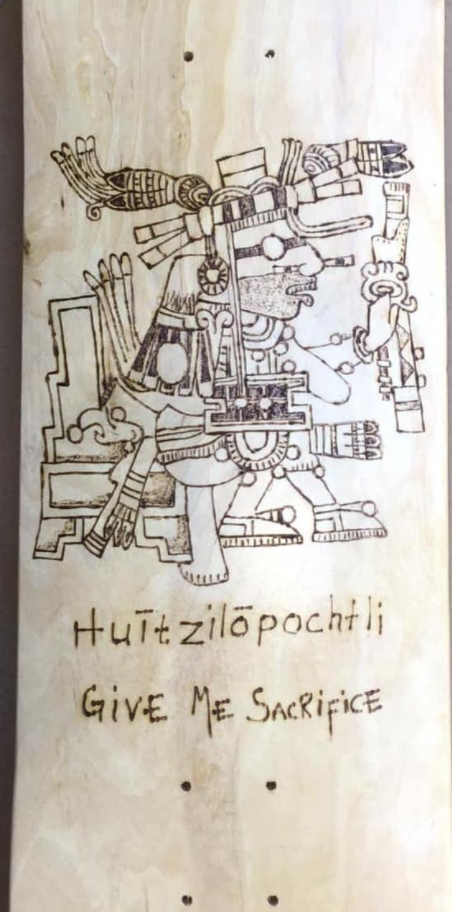 Huītzilōpochtli
GIVE ME SACRIFICE